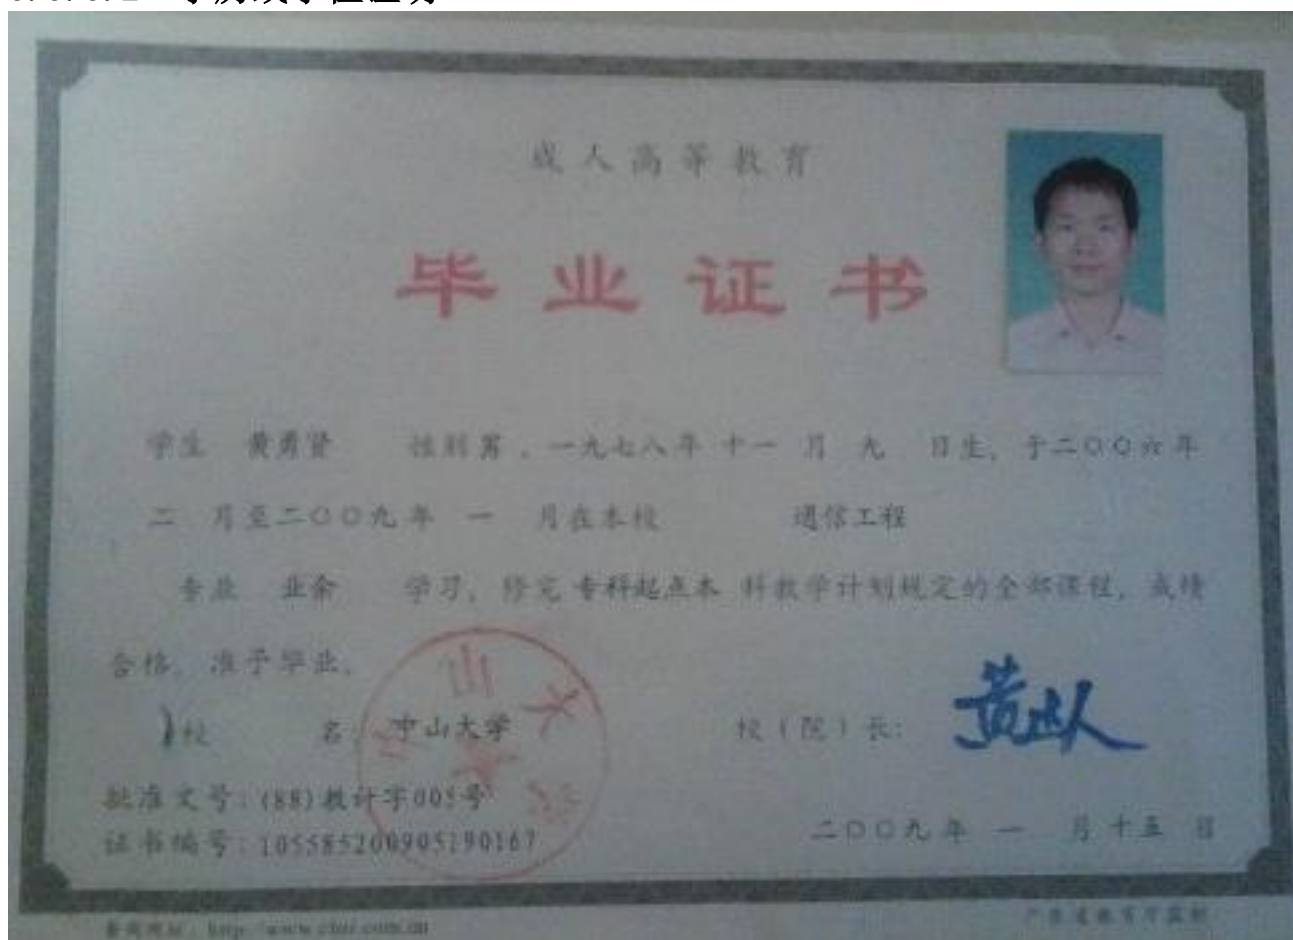 成人高等教育
毕业证书
学生 黄勇贤 性别 男 ，一九七八年 十一 月 九 日生，于二〇〇六年
二 月至二〇〇九年 一 月在本校 通信工程
专业 业余 学习，修完 专科起点本 科教学计划规定的全部课程，成绩
合格，准予毕业。
校 名：中山大学 校（院）长：黄达人
批准文号：(88)教计字005号
证书编号：105585200905190167
二〇〇九年 一 月 十五 日
查询网址：http://www.chsi.com.cn
广东省教育厅监制